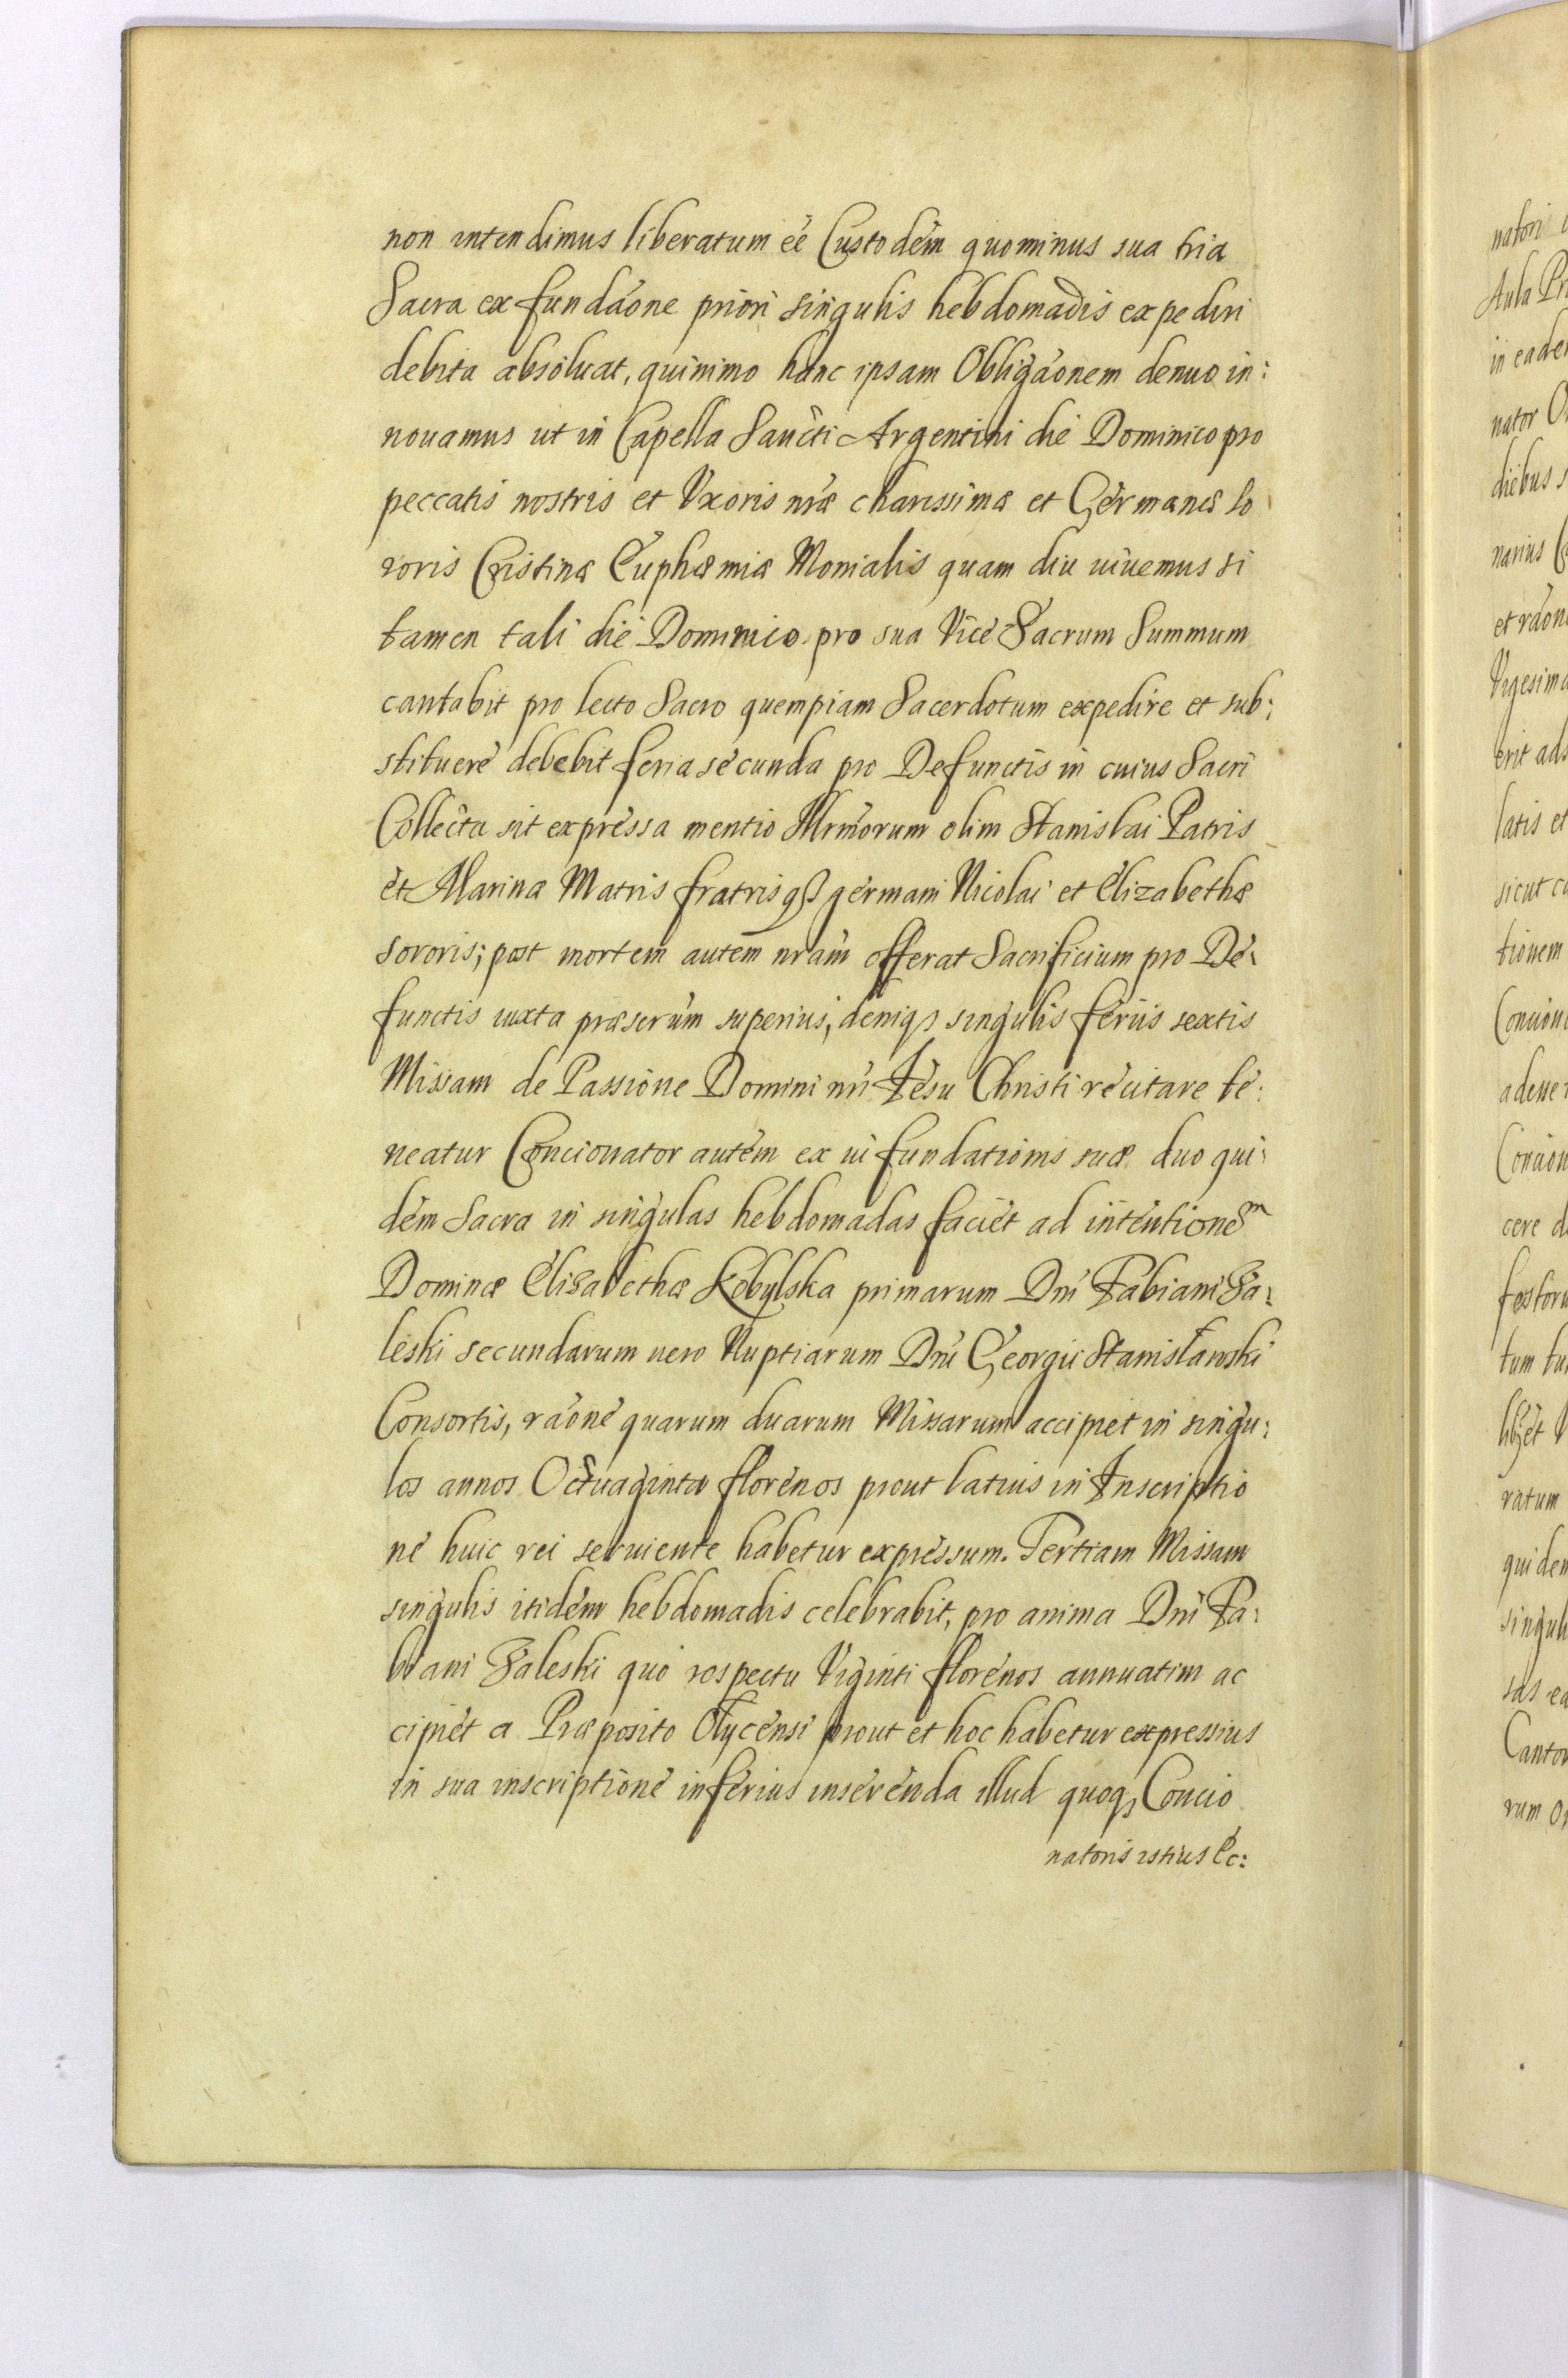 non intendimus liberatum eé Custodém quominus sua tria
Sacra ex fundaóne priori singulis hebdomadis expediri
debita absoluat, quinimo hanc ipsam Obligaónem denuo in:
nouamus ut in Capella Sancti Argentini die Dominico pro
peccatis nostris et Vxoris nræ charissimæ et Germanæ So
roris Cristinæ Euphæmiæ Monialis quam diu uiuemus si
tamen tali die Dominico pro sua Vice Sacrum Summum
cantabit pro lecto Sacro quempiam Sacerdotum expedire et sub:
stituere debebit feria secunda pro Defunctis in cuius Sacri
Collecta sit expressa mentio Illrmorum olim Stanislai Patris
et Marinæ Matris fratrisqȝ germani Nicolai et Elizabethæ
sororis; post mortem autem nram offerat Sacrificium pro De:
functis iuxta præscrum superius, deniqȝ singulis feriis sextis
Missam de Passione Domini nri Iesu Christi recitare te:
neatur Concionator autem ex ui fundationis suæ duo qui:
dem Sacra in singulas hebdomadas faciet ad intentionem
Dominæ Elisabethæ Kobylska primarum Dni Fabiani Za:
leski secundarum uero Nuptiarum Dni Georgii Stanisławski
Consortis, raóne quarum duarum Missarum accipiet in singu:
los annos Octuaginta florenos prout latius in Inscriptio
ne huic rei seruiente habetur expressum. Tertiam Missam
singulis itidem hebdomadis celebrabit, pro anima Dni Fa:
biani Zaleski quo respectu Viginti florenos annuatim ac
cipiet a Præposito Ołycensi prout et hoc habetur expressius
in sua inscriptione inferius inserenda illud quoqȝ Concio
natoris istius &c:
natori
Aula Pr
in eade
nator O
diebus s
narius C
et raón
Vigesima
erit ads
latis et
sicut c
tionem
Concion
adeue
Concion
cere d
festor
tum tu
libet V
ratum
quidem
singul
sas ea
Cantor
rum O